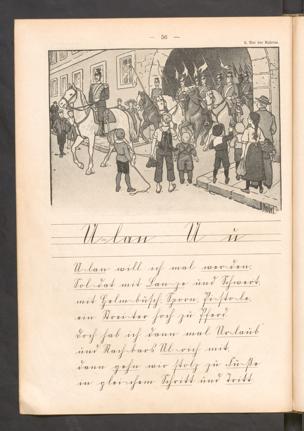 — 56 —
U-lan U u
U-lan will ich mal wer-den,
Sol-dat mit Lan-ze und Schwert,
mit Helm-busch, Sporn, Pi-sto-le,
ein Rei-ter hoch zu Pferd
doch hab ich dann mal Ur-laub
und Nach-bars Ul-rich mit,
dann gehn wir stolz zu Fu-ße
in glei-chem Schritt und Tritt